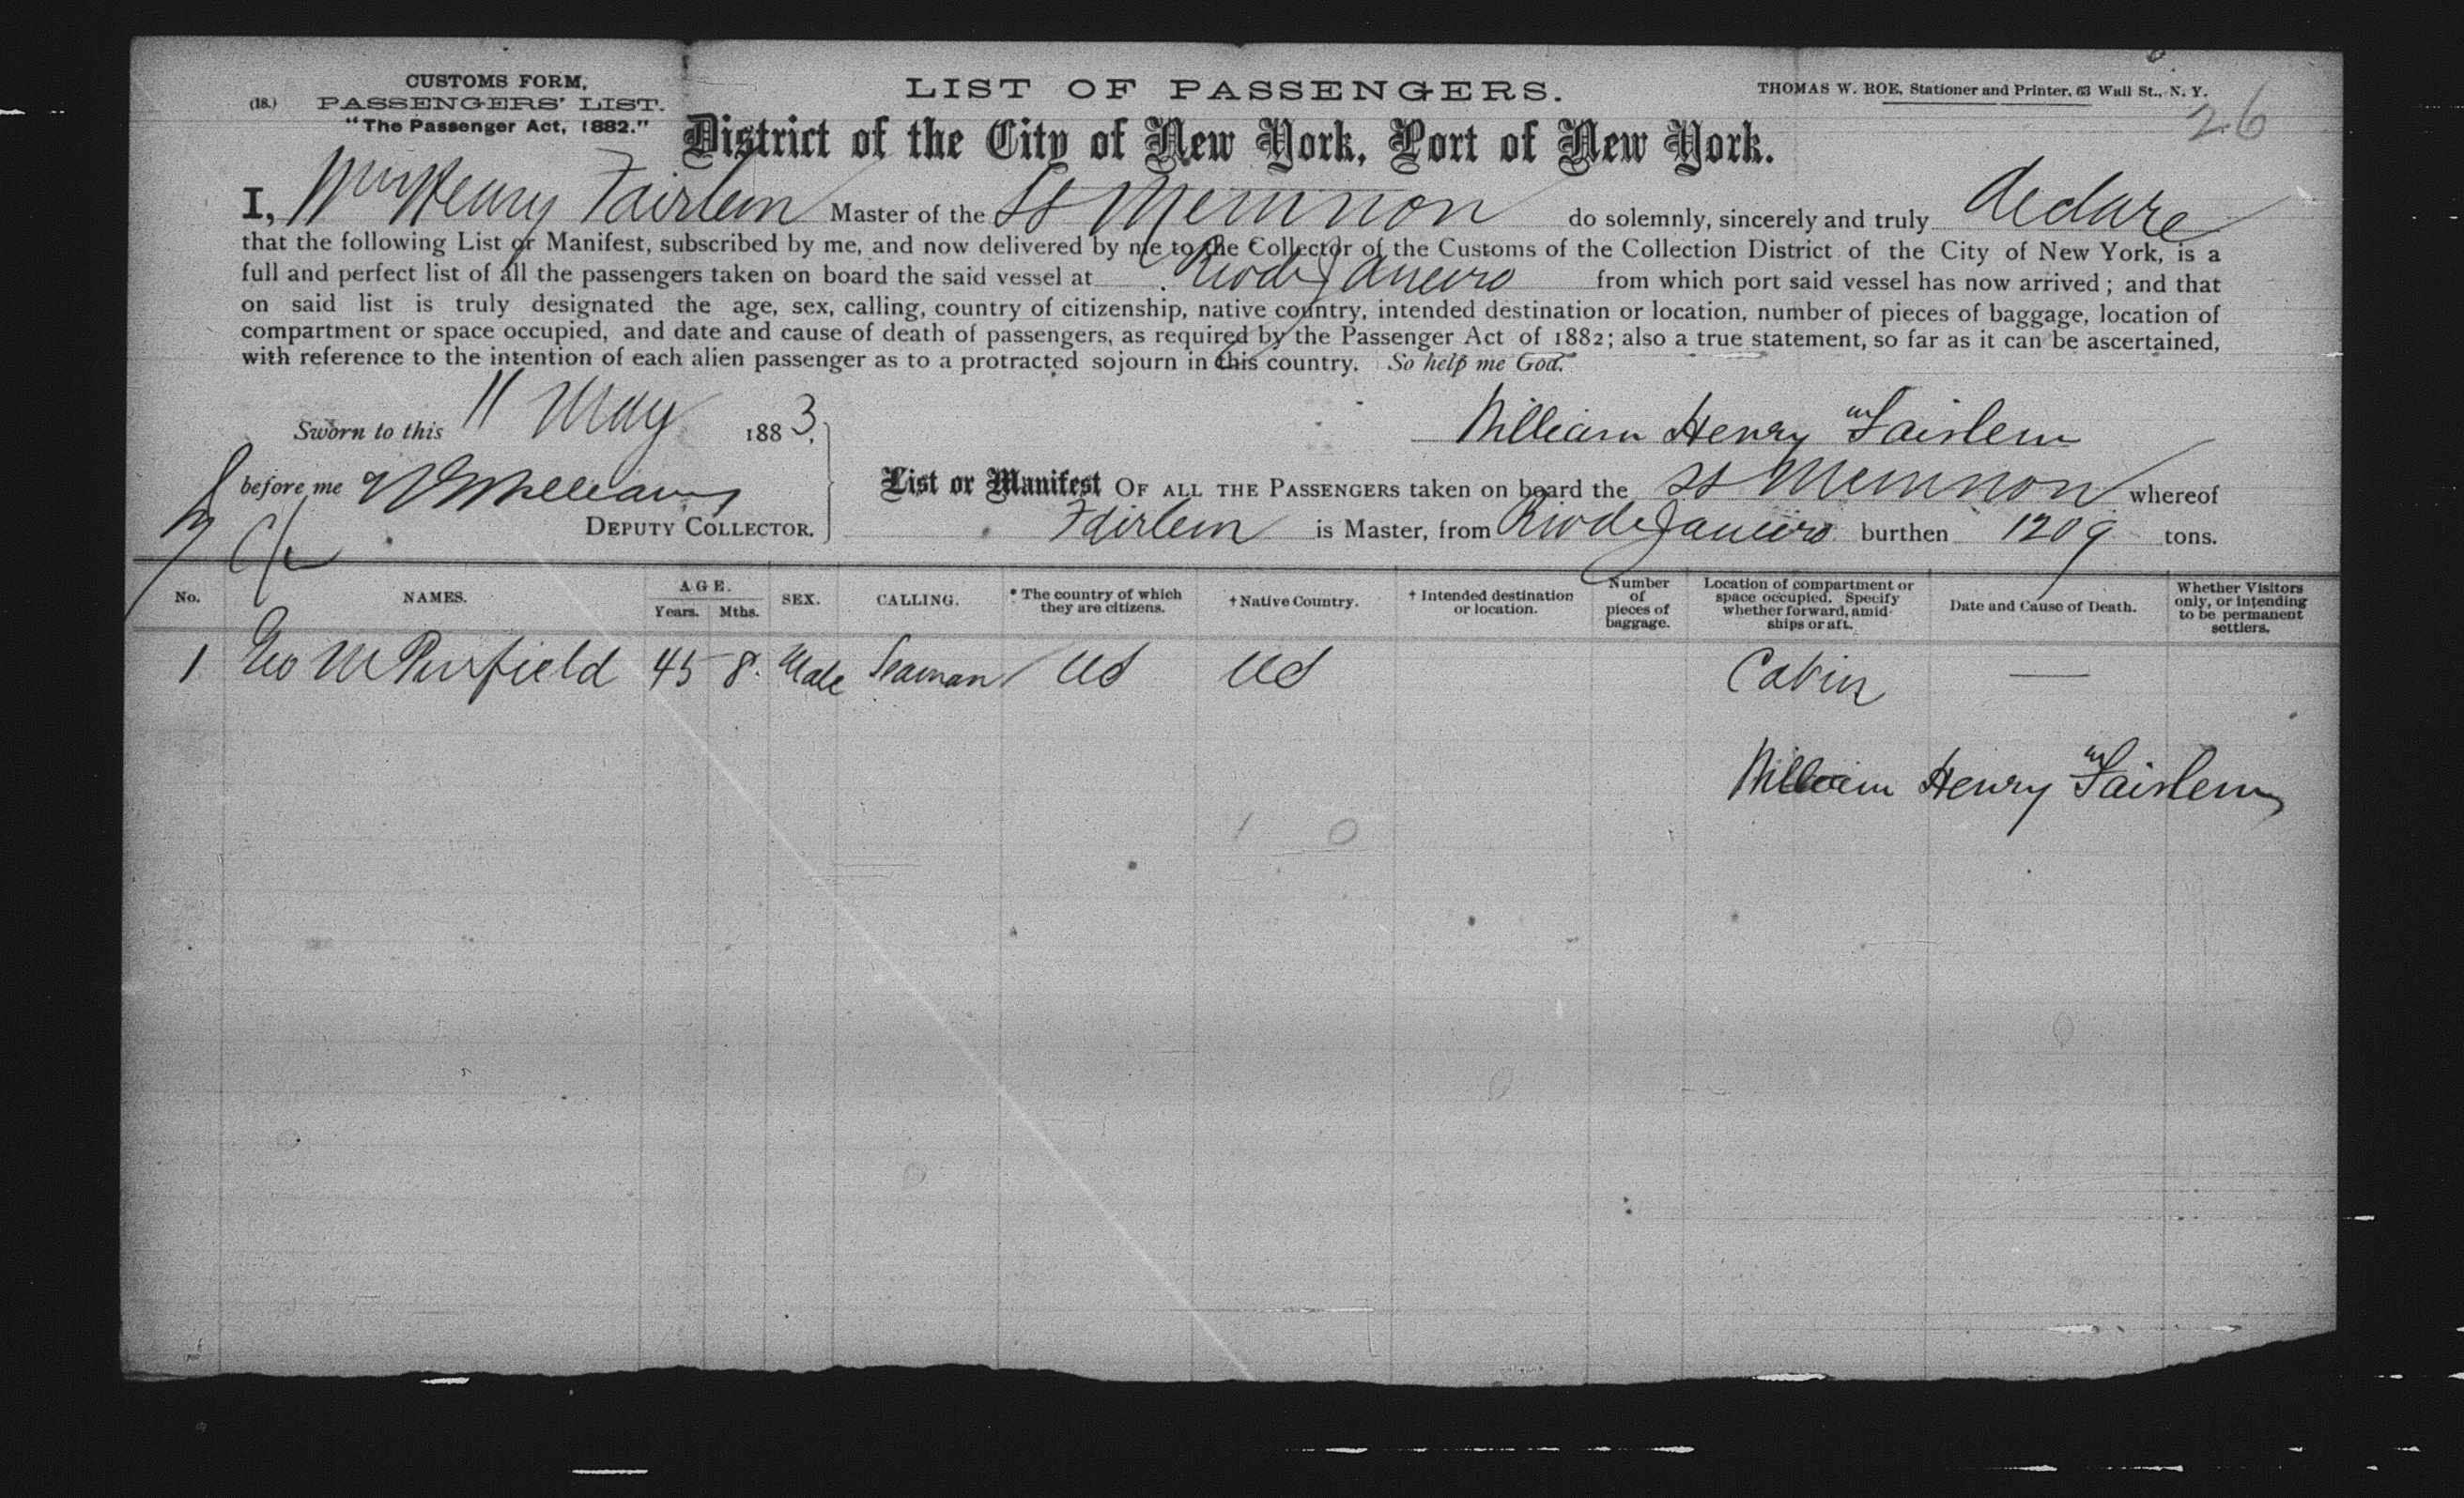 CUSTOMS FORM,
(18.) PASSENGERS' LIST.
"The Passenger Act, 1882."
LIST OF PASSENGERS.
THOMAS W. ROE, Stationer and Printer, 63 Wall St., N. Y.
26
District of the City of New York, Port of New York.
I, Wm Henry Fairlem Master of the SS Memnon do solemnly, sincerely and truly declare
that the following List or Manifest, subscribed by me, and now delivered by me to the Collector of the Customs of the Collection District of the City of New York, is a
full and perfect list of all the passengers taken on board the said vessel at Rio de Janeiro from which port said vessel has now arrived; and that
on said list is truly designated the age, sex, calling, country of citizenship, native country, intended destination or location, number of pieces of baggage, location of
compartment or space occupied, and date and cause of death of passengers, as required by the Passenger Act of 1882; also a true statement, so far as it can be ascertained,
with reference to the intention of each alien passenger as to a protracted sojourn in this country. So help me God.
Sworn to this 11 May 1883.
William Henry Fairlem
before me
DEPUTY COLLECTOR.
List or Manifest OF ALL THE PASSENGERS taken on board the SS Memnon whereof
Fairlem is Master, from Rio de Janeiro burthen 1209 tons.
No. NAMES. AGE. Years. Mths. SEX. CALLING. * The country of which they are citizens. † Native Country. † Intended destination or location. Number of pieces of baggage. Location of compartment or space occupied. Specify whether forward, amidships or aft. Date and Cause of Death. Whether Visitors only, or intending to be permanent settlers.
1 Geo W Penfield 45 8 Male Seaman US US Cabin —
William Henry Fairlem
1 0